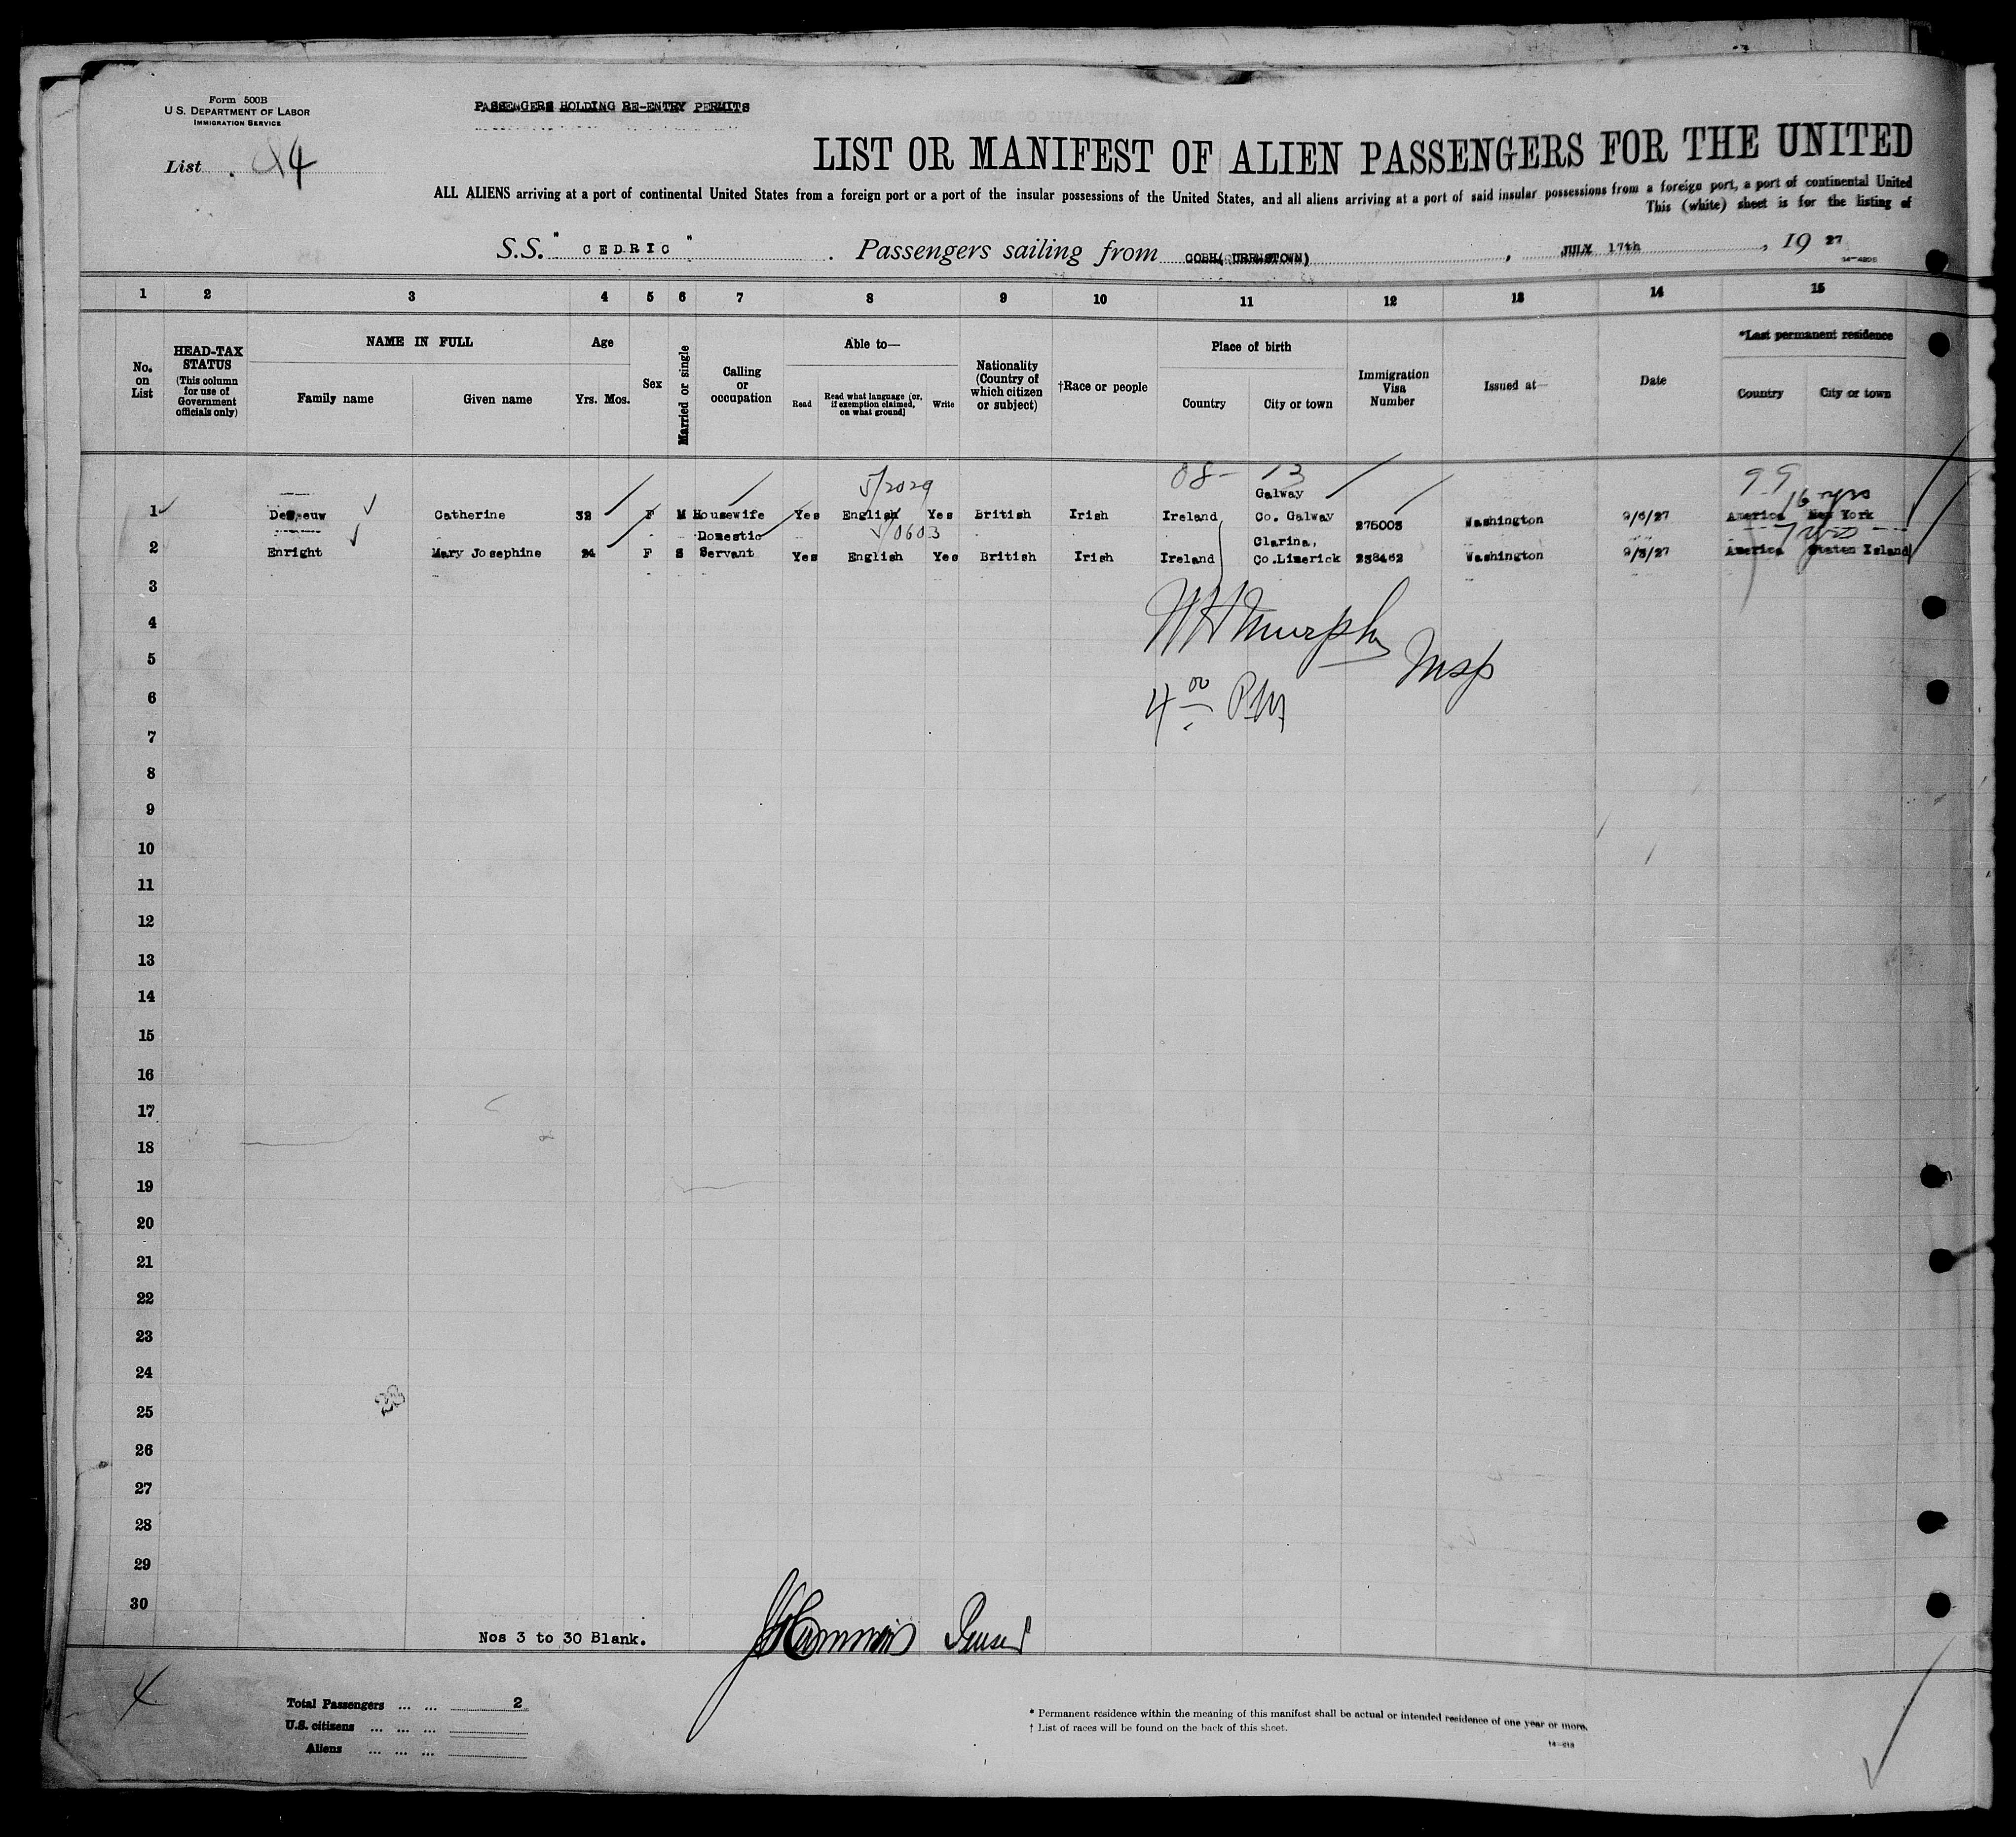 Form 500B
U.S. DEPARTMENT OF LABOR
IMMIGRATION SERVICE
PASSENGERS HOLDING RE-ENTRY PERMITS
List 4
LIST OR MANIFEST OF ALIEN PASSENGERS FOR THE UNITED
ALL ALIENS arriving at a port of continental United States from a foreign port or a port of the insular possessions of the United States, and all aliens arriving at a port of said insular possessions from a foreign port, a port of continental United
This (white) sheet is for the listing of
S.S. " CEDRIC " . Passengers sailing from COBH( , JULY 17th , 19 27
1 2 3 4 5 6 7 8 9 10 11 12 13 14 15
No. on List
HEAD-TAX STATUS
(This column for use of Government officials only)
NAME IN FULL
Family name Given name
Age
Yrs. Mos.
Sex
Married or single
Calling or occupation
Able to—
Read
Read what language [or, if exemption claimed, on what ground]
Write
Nationality (Country of which citizen or subject)
†Race or people
Place of birth
Country City or town
Immigration Visa Number
Issued at—
Date
*Last permanent residence
Country City or town
5/2029 08- 13 99
Galway 16 yrs
1 Catherine 32 F M Housewife Yes English Yes British Irish Ireland Co. Galway 275003 Washington 2/6/27 America New York
Domestic 5/0603 Clarina, 7 yrs
2 Enright Mary Josephine 24 F S Servant Yes English Yes British Irish Ireland Co.Limerick 238462 Washington 2/3/27 America Staten Island
3
4 Murphy
5 Insp
6 4 00 PM
7
8
9
10
11
12
13
14
15
16
17
18
19
20
21
22
23
24
28
25
26
27
28
29
30
Nos 3 to 30 Blank.
4
Total Passengers ... ... 2
U.S. citizens ... ... ...
Aliens ... ... ...
* Permanent residence within the meaning of this manifest shall be actual or intended residence of one year or more.
† List of races will be found on the back of this sheet.